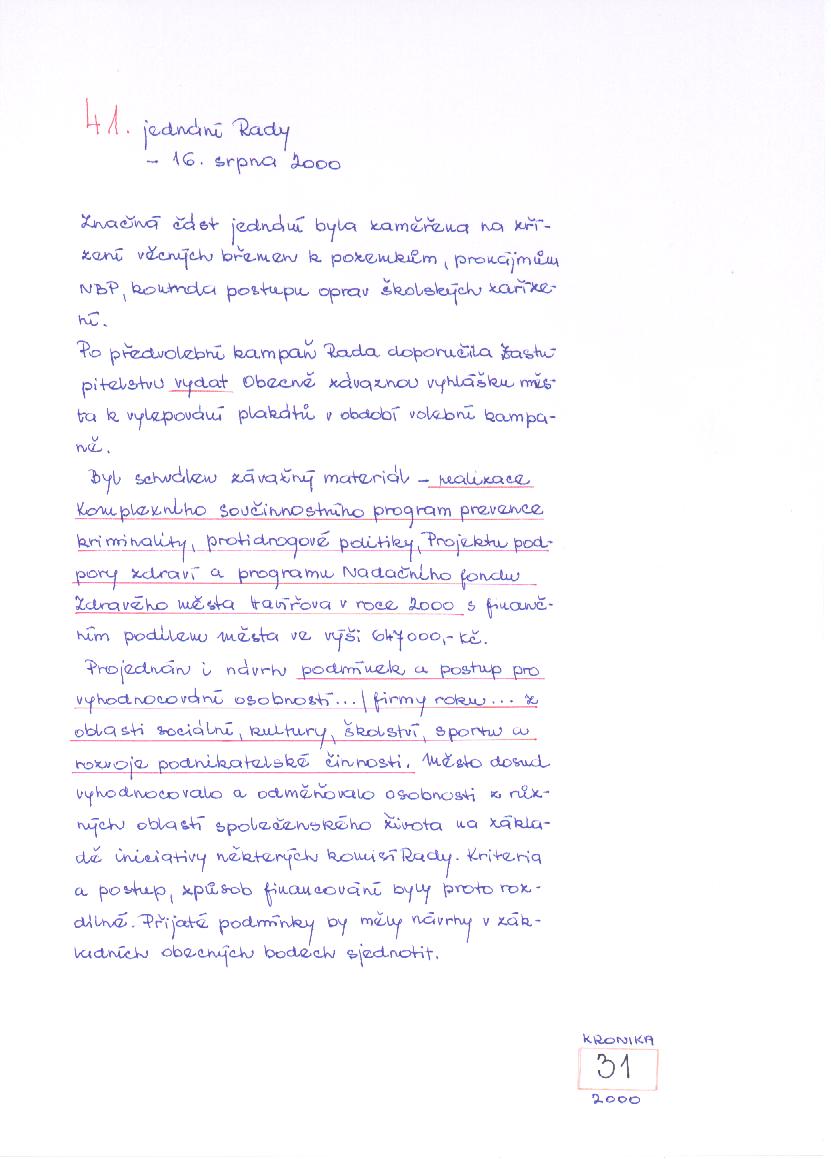 41. jednání Rady
- 16. srpna 2000
Značná část jednání byla zaměřena na zří-
zení věcných břemen k pozemkům, pronájmům
NBP, kontrola postupu oprav školských zaříze-
ní.
Po předvolební kampaň Rada doporučila Zastu
pitelstvu vydat Obecně závaznou vyhlášku měs-
ta k vylepování plakátů v období volební kampa-
ně.
Byl schválen závažný materiál - realizace
Komplexního součinnostního program prevence
kriminality, protidrogové politiky, Projektu pod-
pory zdraví a programu Nadačního fondu
Zdravého města Havířova v roce 2000 s finanč-
ním podílem města ve výši 647000,- Kč.
Projednán i návrh podmínek a postup pro
vyhodnocování osobností.../firmy roku... z
oblasti sociální, kultury, školství, sportu a
rozvoje podnikatelské činnosti. Město dosud
vyhodnocovalo a odměňovalo osobnosti z růz-
ných oblastí společenského života na zákla-
dě iniciativy některých komisí Rady. Kriteria
a postup, způsob financování byly proto roz-
dílné. Přijaté podmínky by měly návrhy v zák-
ladních obecných bodech sjednotit.
KRONIKA
31
2000